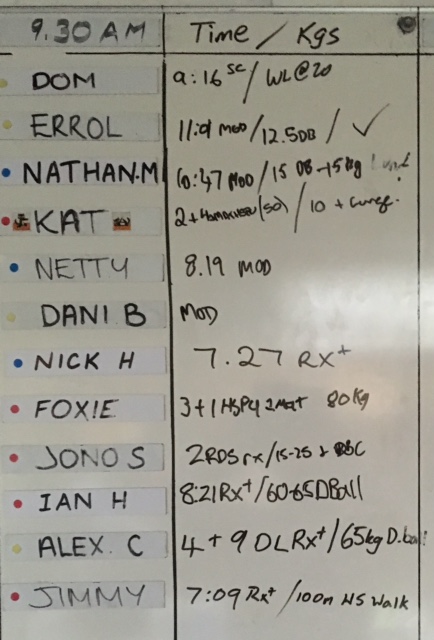 9.30 AM Time / Kgs
DOM 9:16 SC / WL@20
ERROL MOD / 12.5DB / ✓
NATHAN.M 10:47 MOD / 15 DB - 15kg
KAT 2 + (50) / 10 +
NETTY 8.19 MOD
DANI B MOD
NICK H 7.27 RX+
FOXIE 3+1 HSPU 80kg
JONO S 2RDS rx / 15-25
IAN H 8:21 RX+ / 60-65 DBall
ALEX. C 4 + 9 DL RX+ / 65kg D.ball
JIMMY 7:09 RX+ / 100m HS Walk